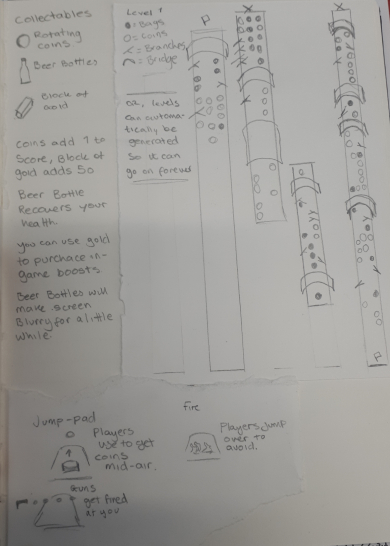 Collectables
Rotating
coins
Beer Bottles
Block of
Gold
Coins add 1 to
Score, Block of
gold adds 50
Beer Bottle
Recovers your
health.
you can use gold
to purchace in-
game boosts
Beer Bottles will
make screen
Blurry for a little
while.
Level 1
= Bugs
= Coins
= Branches
= Bridge
levels
can automa-
tically be
generated
So it can
go on forever
P
X
X
P
Jump-pad
Players
use to get
coins
mid-air.
Fire
Players jump
over to
avoid.
Guns
get fired
at you